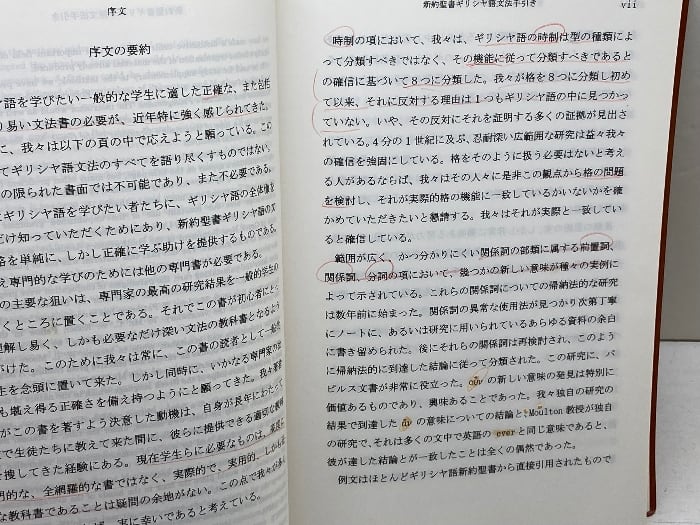 序文
序文の要約
ヤ語を学びたい一般的な学生に適した正確な、また包括
り易い文法書の必要が、近年特に強く感じられてきた。
に、我々は以下の頁の中で応えようと願っている。この
てギリシヤ語文法のすべてを語り尽くすものではない。
の限られた書面では不可能であり、また不必要である。
ギリシヤ語を学びたい者たちに、ギリシヤ語の全体像を
だけ知っていただくためにあり、新約聖書ギリシヤ語の文
格を単純に、しかし正確に学ぶ助けを提供するものである。
え専門的な学びのためには他の専門書が必要である。
の主要な狙いは、専門家の最高の研究結果を一般的学生の
くところに置くことである。それでこの書が初心者にとっ
理解し易く、しかも必要なだけ深い文法の教科書となるよう
がけた。このために我々は常に、この書の読者として一般的
生を念頭に置いて来た。しかし同時に、いかなる専門家の
も堪え得る正確さを備え持つようにと願ってきた。我々
がこの書を著すよう決意した動機は、自身が長年にわたって
で生徒たちに教えて来た間に、彼らに提供できる適切な教科
を捜してきた経験にある。現在学生らに必要なものは、
門的な、全網羅的な書ではなく、実際的で、実用的
な教科書であることは疑問の余地がない。この点で我々が
実に幸いであると考えている。
新約聖書ギリシヤ語文法手引き
vii
時制の項において、我々は、ギリシヤ語の時制は型の種類によ
って分類すべきではなく、その機能に従って分類すべきであると
の確信に基づいて8つに分類した。我々が格を8つに分類し初め
て以来、それに反対する理由は1つもギリシヤ語の中に見つかっ
ていない。いや、その反対にそれを証明する多くの証拠が見出さ
れている。4分の1世紀に及ぶ、忍耐深い広範囲な研究は益々我々
の確信を強固にしている。格をそのように扱う必要はないと考え
る人があるならば、我々はその人々に是非この観点から格の問題
を検討し、それが実際的格の機能に一致しているかいないかを確
かめていただきたいと懇請する。我々はそれが実際と一致してい
ると確信している。
範囲が広く、かつ分かりにくい関係詞の部類に属する前置詞、
関係詞、分詞の項において、幾つかの新しい意味が種々の実例に
よって示されている。これらの関係詞についての帰納法的な研究
は数年前に始まった。関係詞の異常な使用法が見つかり次第丁寧
にノートに、あるいは研究に用いられているあらゆる資料の余白
に書き留められた。後にそれらの関係詞は再検討され、このよう
に帰納法的に到達した結論に従って分類された。この研究に、パ
ピルス文書が非常に役立った。οὖν の新しい意味の発見は特別に
価値あるものであり、興味あることであった。我々独自の研究の
結果で到達した ἄν の意味についての結論と、Moulton 教授が独自
の研究で、それは多くの文中で英語の ever と同じ意味であると、
彼が達した結論とが一致したことは全くの偶然であった。
例文はほとんどギリシヤ語新約聖書から直接引用されたもので